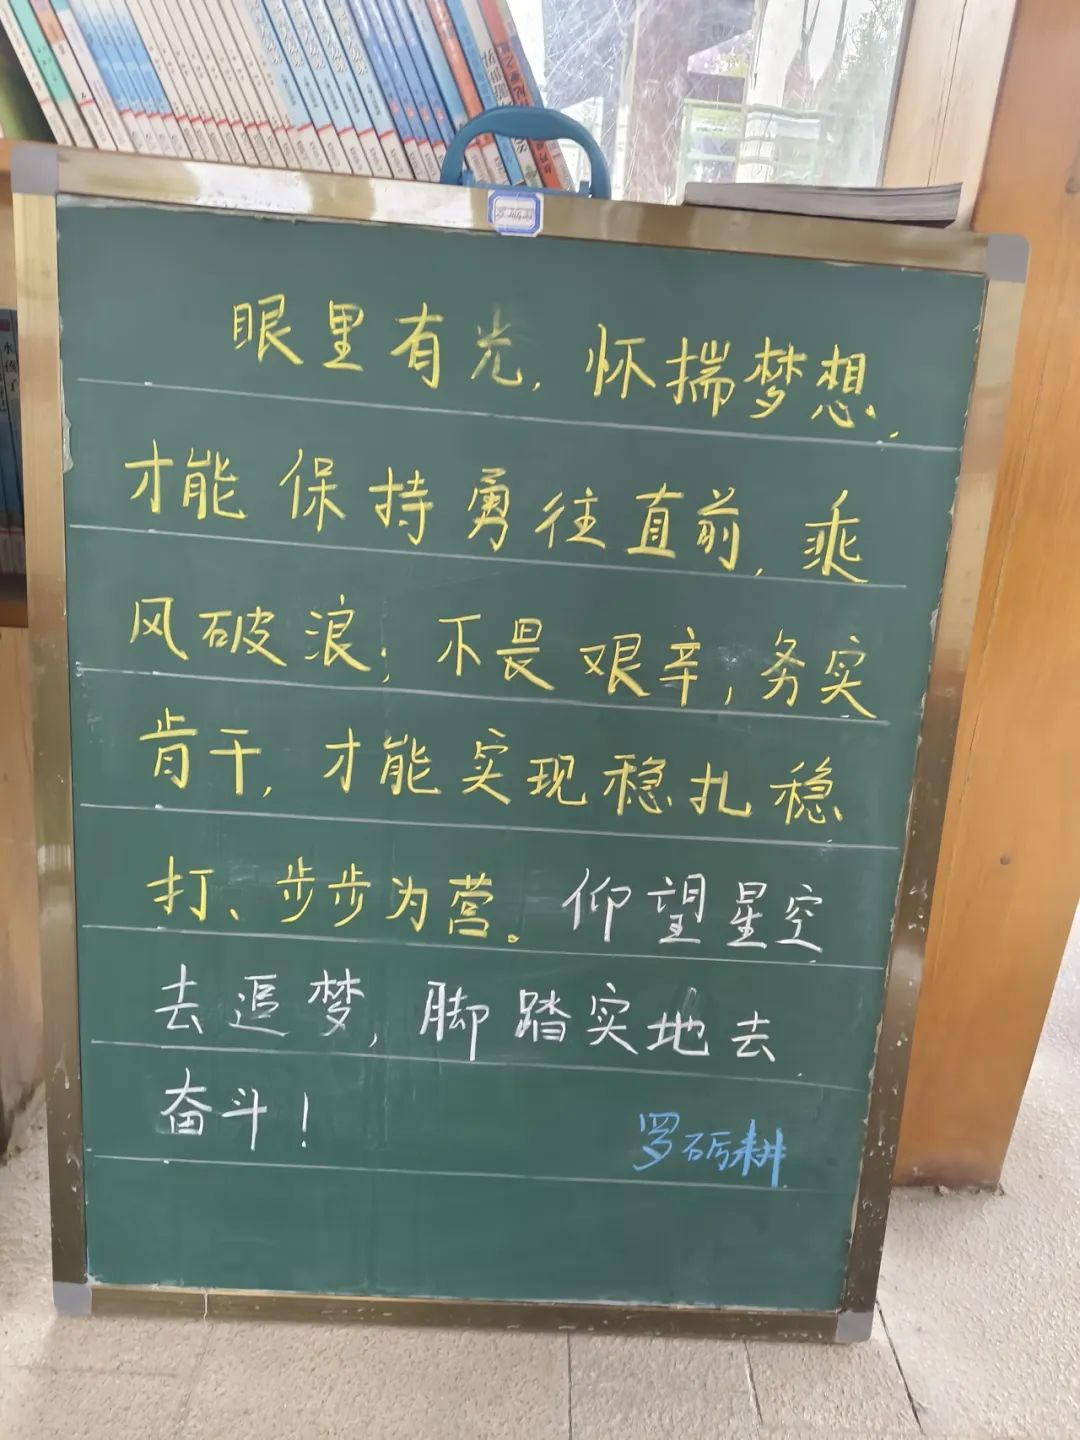 眼里有光，怀揣梦想，
才能保持勇往直前，乘
风破浪；不畏艰辛，务实
肯干，才能实现稳扎稳
打、步步为营。仰望星空
去追梦，脚踏实地去
奋斗！
罗砺耕